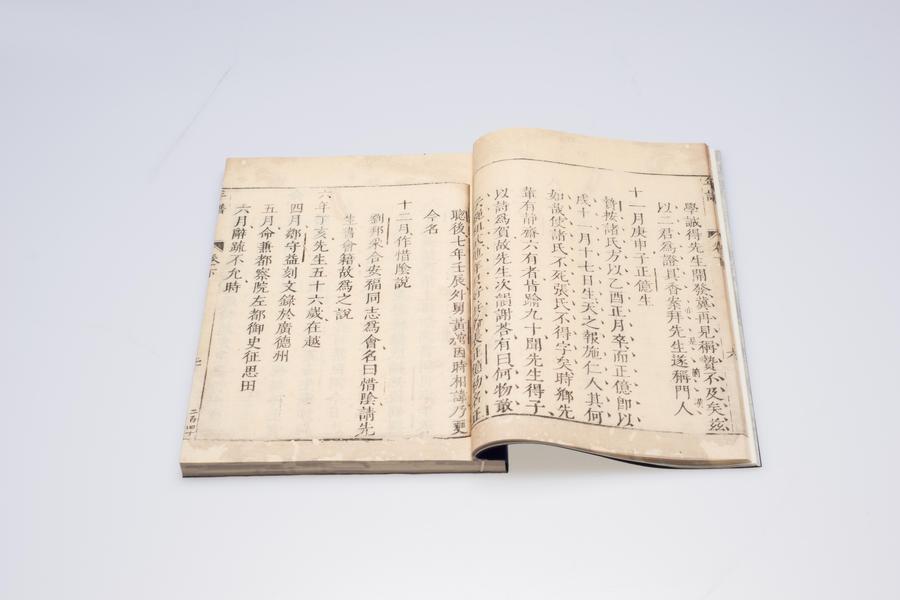 學誠得先生開發冀再見稱贄不及矣茲
以二君爲證具香案拜先生遂稱門人
十一月庚申子正億生
諸氏方以乙酉正月卒而正億卽以
戌十一月十七日生天之報施仁人其何
如哉使諸氏不死張氏不得字矣時鄉先
輩有靜齋六有者皆踰九十聞先生得子
以詩爲賀故先生次韻謝荅有曰何物敢
聰後七年壬辰外舅黃綰因時相諱乃更
今名
十二月作惜陰說
劉邦采合安福同志爲會名曰惜陰請先
生書會籍故爲之說
六年丁亥先生五十六歲在越
四月鄒守益刻文錄於廣德州
五月命兼都察院左都御史征思田
六月辭疏不允時
年譜
卷下